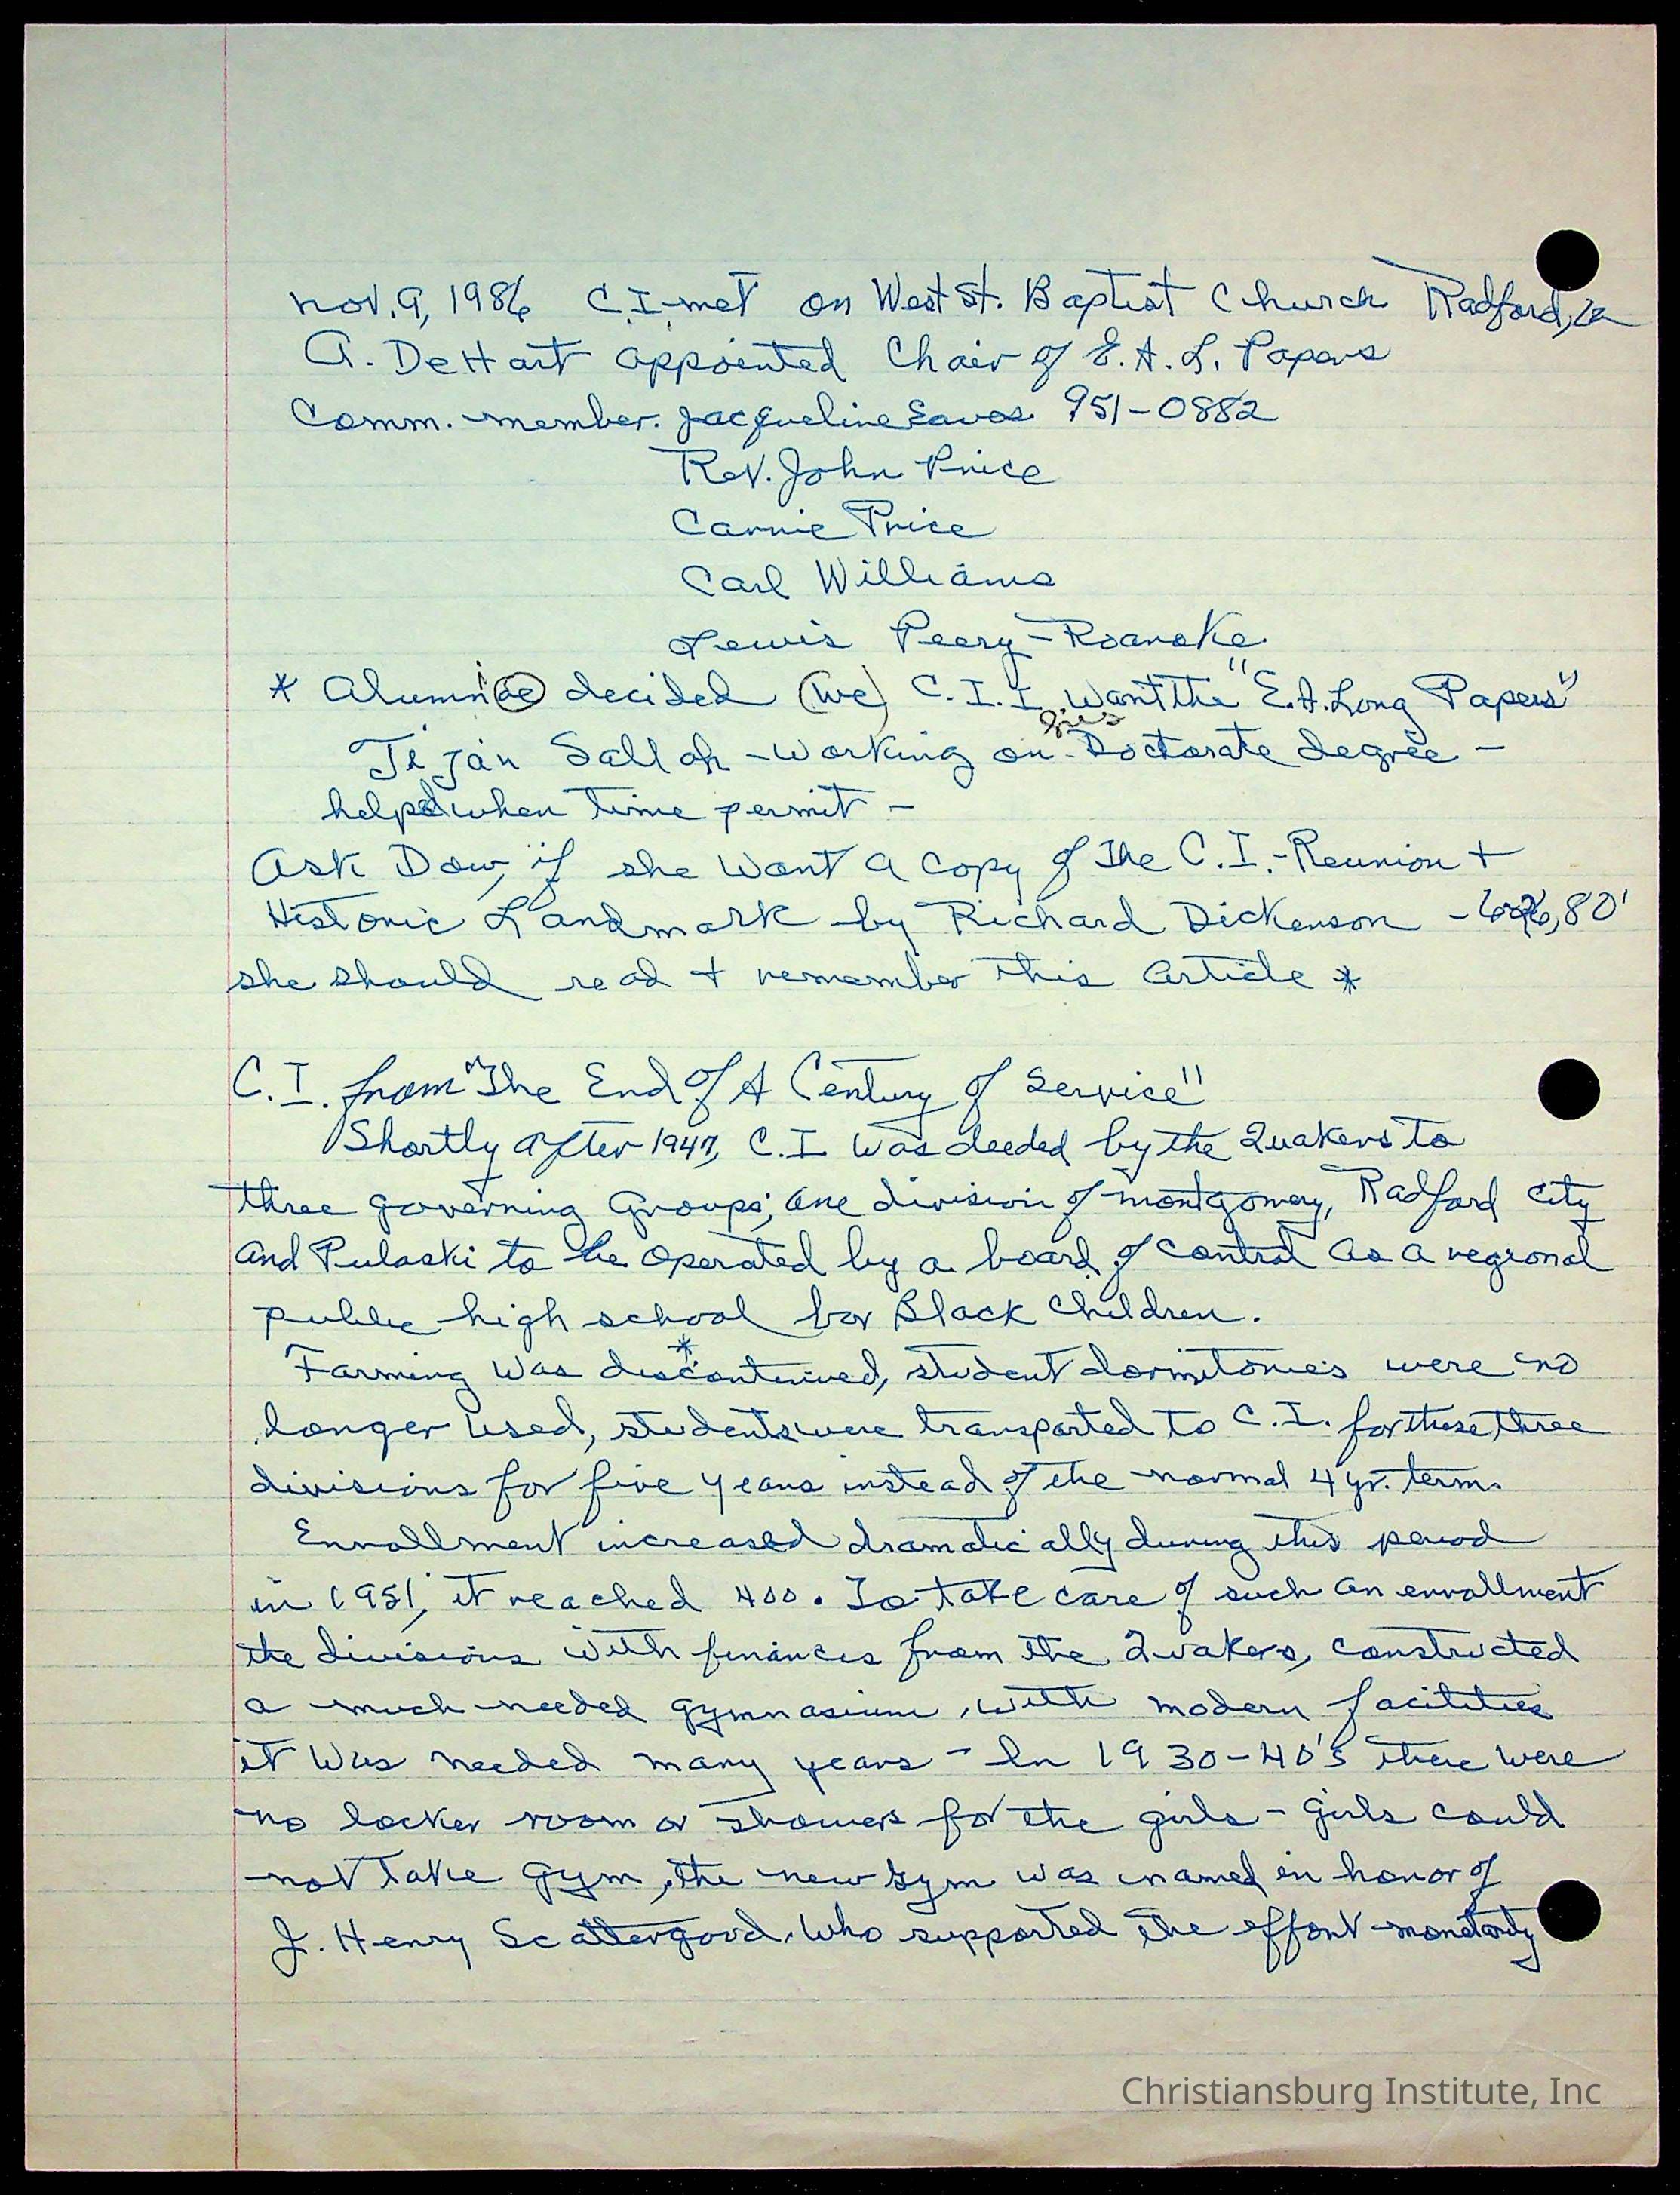 Nov. 9, 1986 C.I. met on West St. Baptist Church Radford, Va
A. DeHart appointed Chair of E. A. L. Papers
Comm. member. Jacqueline Eaves 951-0882
Rev. John Price
Carrie Price
Carl Williams
Lewis Peery - Roanoke.
* Alumniae decided (we) C.I.I. want the "E.A. Long Papers"
his
Tijan Sallah - working on Doctorate degree -
helped when time permit -
Ask Dow, if she want a copy of the C.I. - Reunion +
Historic Landmark by Richard Dickenson - 80'
she should read + remember this article *
C.I. from "The End Of A Century of Service"
Shortly after 1947, C.I. was deeded by the Quakers to
three governing groups; one division of Montgomery, Radford City
and Pulaski to be operated by a board of control as a regional
public high school for Black Children.
*
Farming was discontinued, student dormitories were no
longer used, students were transported to C.I. for these three
divisions for five years instead of the normal 4 yr. term.
Enrollment increased dramatically during this period
in 1951, it reached 400. To take care of such an enrollment
the divisions with finances from the Quakers, constructed
a much needed gymnasium, with modern facilities
it was needed many years - In 1930-40's there were
no locker room or showers for the girls - girls could
not take gym, the new gym was named in honor of
J. Henry Scattergood. Who supported the effort monetarily
Christiansburg Institute, Inc